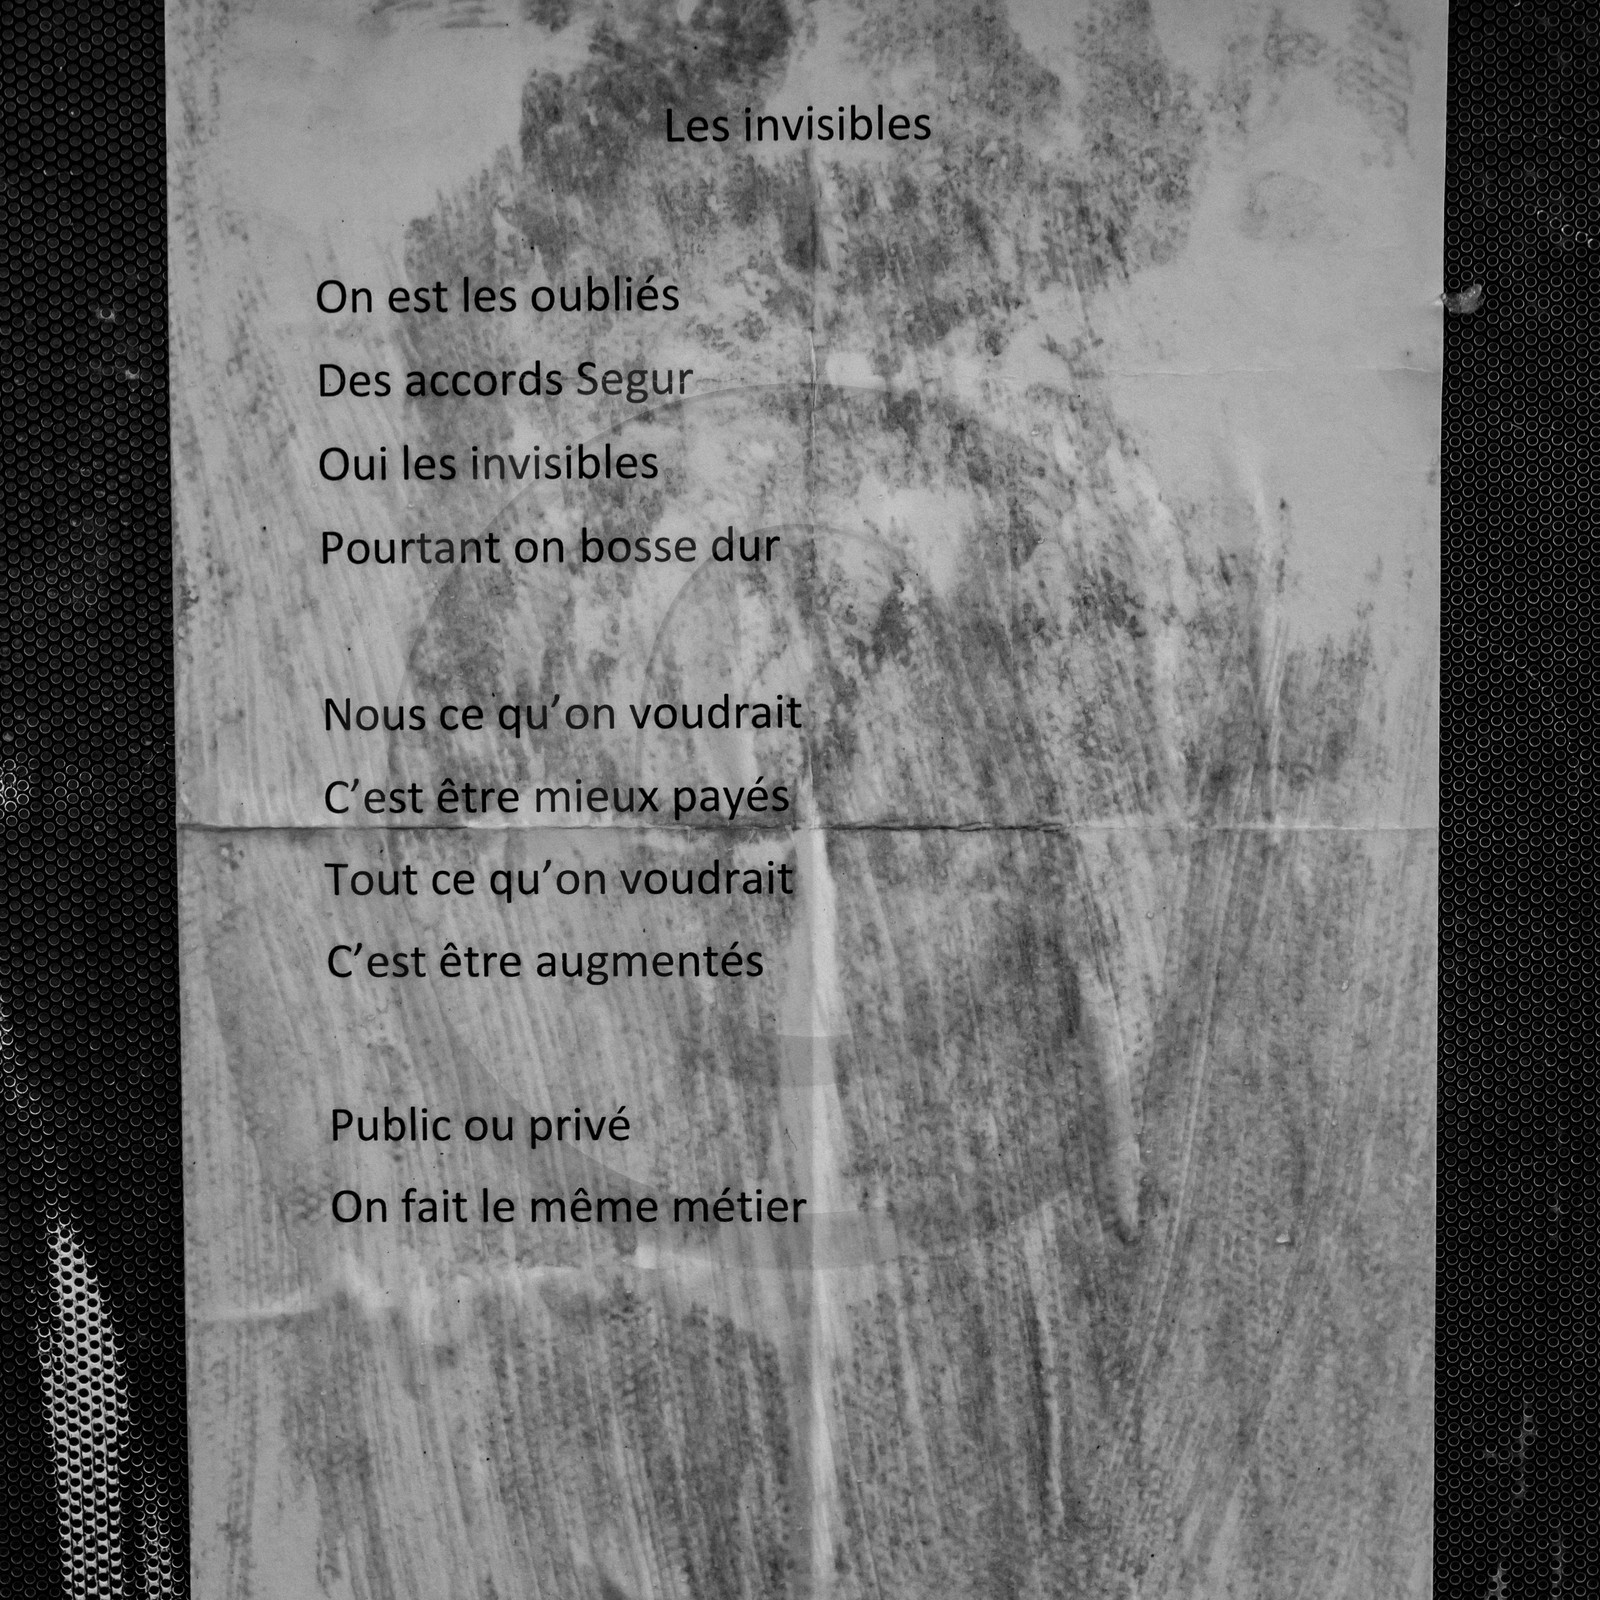 Les invisibles
On est les oubliés
Des accords Segur
Oui les invisibles
Pourtant on bosse dur
Nous ce qu’on voudrait
C’est être mieux payés
Tout ce qu’on voudrait
C’est être augmentés
Public ou privé
On fait le même métier